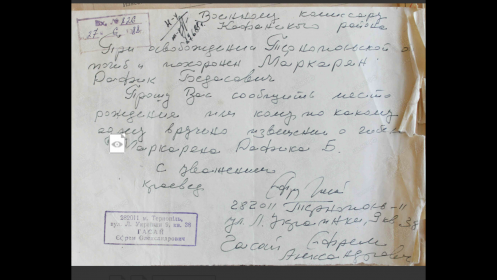 Вх. № 128
Военному комиссару
Кафанского района
При освобождении Тернопольской о
погиб и похоронен Маркарян
Рафик Бедасович
Прошу Вас сообщить место
рождения или кому, по какому
вручено извещение о гибел
Маркаряна Рафика Б.
С уважением
краевед
282011 Тернополь-11
ул Л. Украинки, 9 кв. 38
Гасай Ефрем
Александрович
282011 м. Тернопіль,
вул. Л. Українки 9, кв. 38
ГАСАЙ